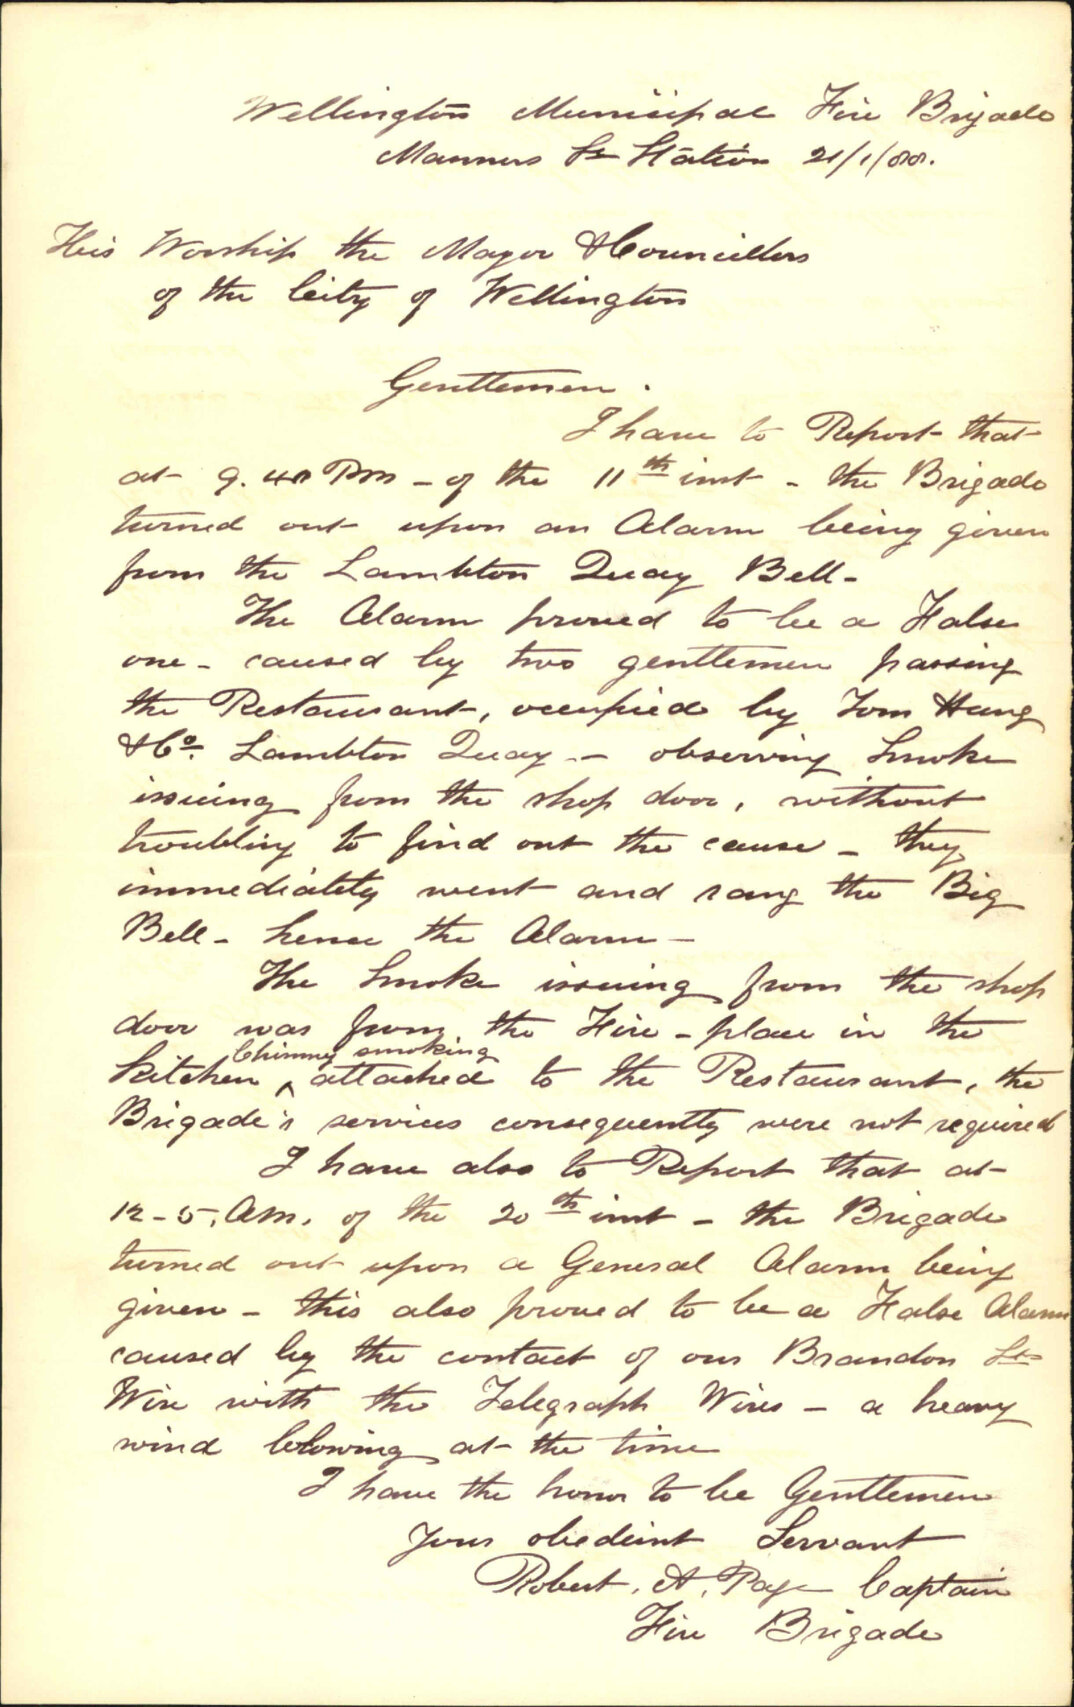 Wellington Municipal Fire Brigade
Manners St Station 21/1/88.
His Worship the Mayor & Councillors
of the City of Wellington
Gentlemen.
I have to Report that
at 9.40 Pm - of the 11th inst - the Brigade
turned out upon an Alarm being given
from the Lambton Quay Bell -
The Alarm proved to be a False
one - caused by two gentlemen passing
the Restaurant, occupied by Tom Hung
& Co. Lambton Quay - observing Smoke
issuing from the shop door, without
troubling to find out the cause - they
immediately went and rang the Big
Bell - hence the Alarm -
The Smoke issuing from the shop
door was from the Fire-place in the
Chimney smoking
Kitchen ^ attached to the Restaurant, the
Brigade's services consequently were not required
I have also to Report that at
12-5. Am. of the 20th inst - the Brigade
turned out upon a General Alarm being
given - this also proved to be a False Alarm
caused by the contact of our Brandon St
Wire with the Telegraph Wires - a heavy
wind blowing at the time
I have the honor to be Gentlemen
Your obedient Servant
Robert. A. Page Captain
Fire Brigade